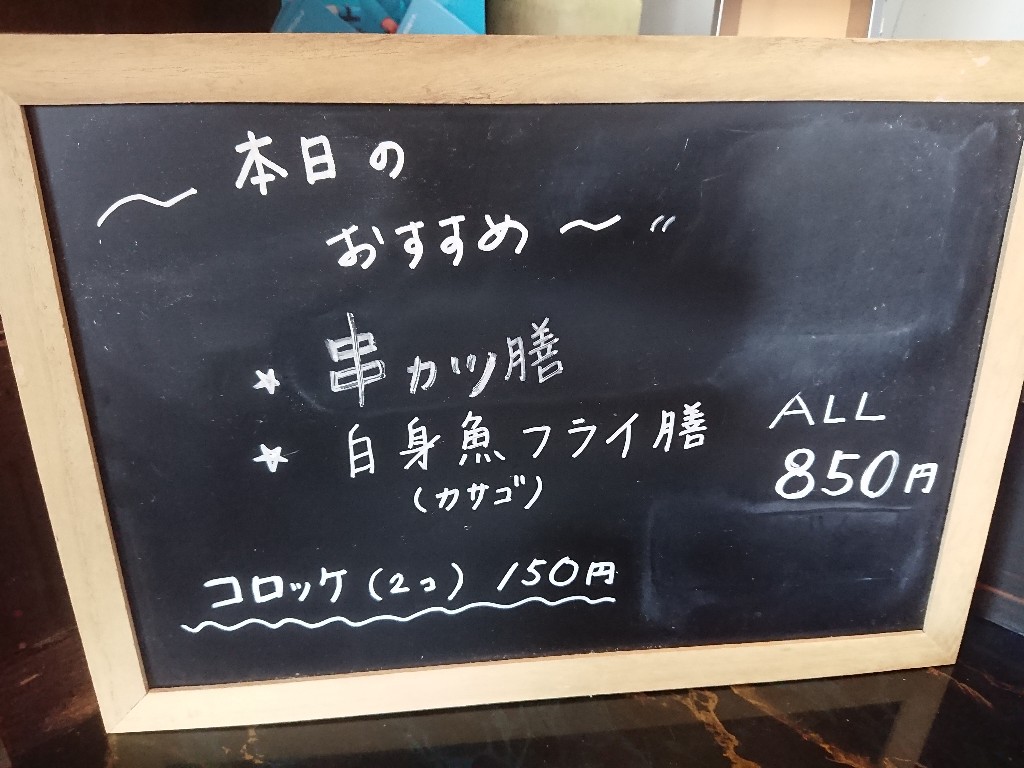 ～本日の
おすすめ～〃
★ 串カツ膳
★ 白身魚フライ膳
(カサゴ)
ALL
850円
コロッケ(2コ) 150円